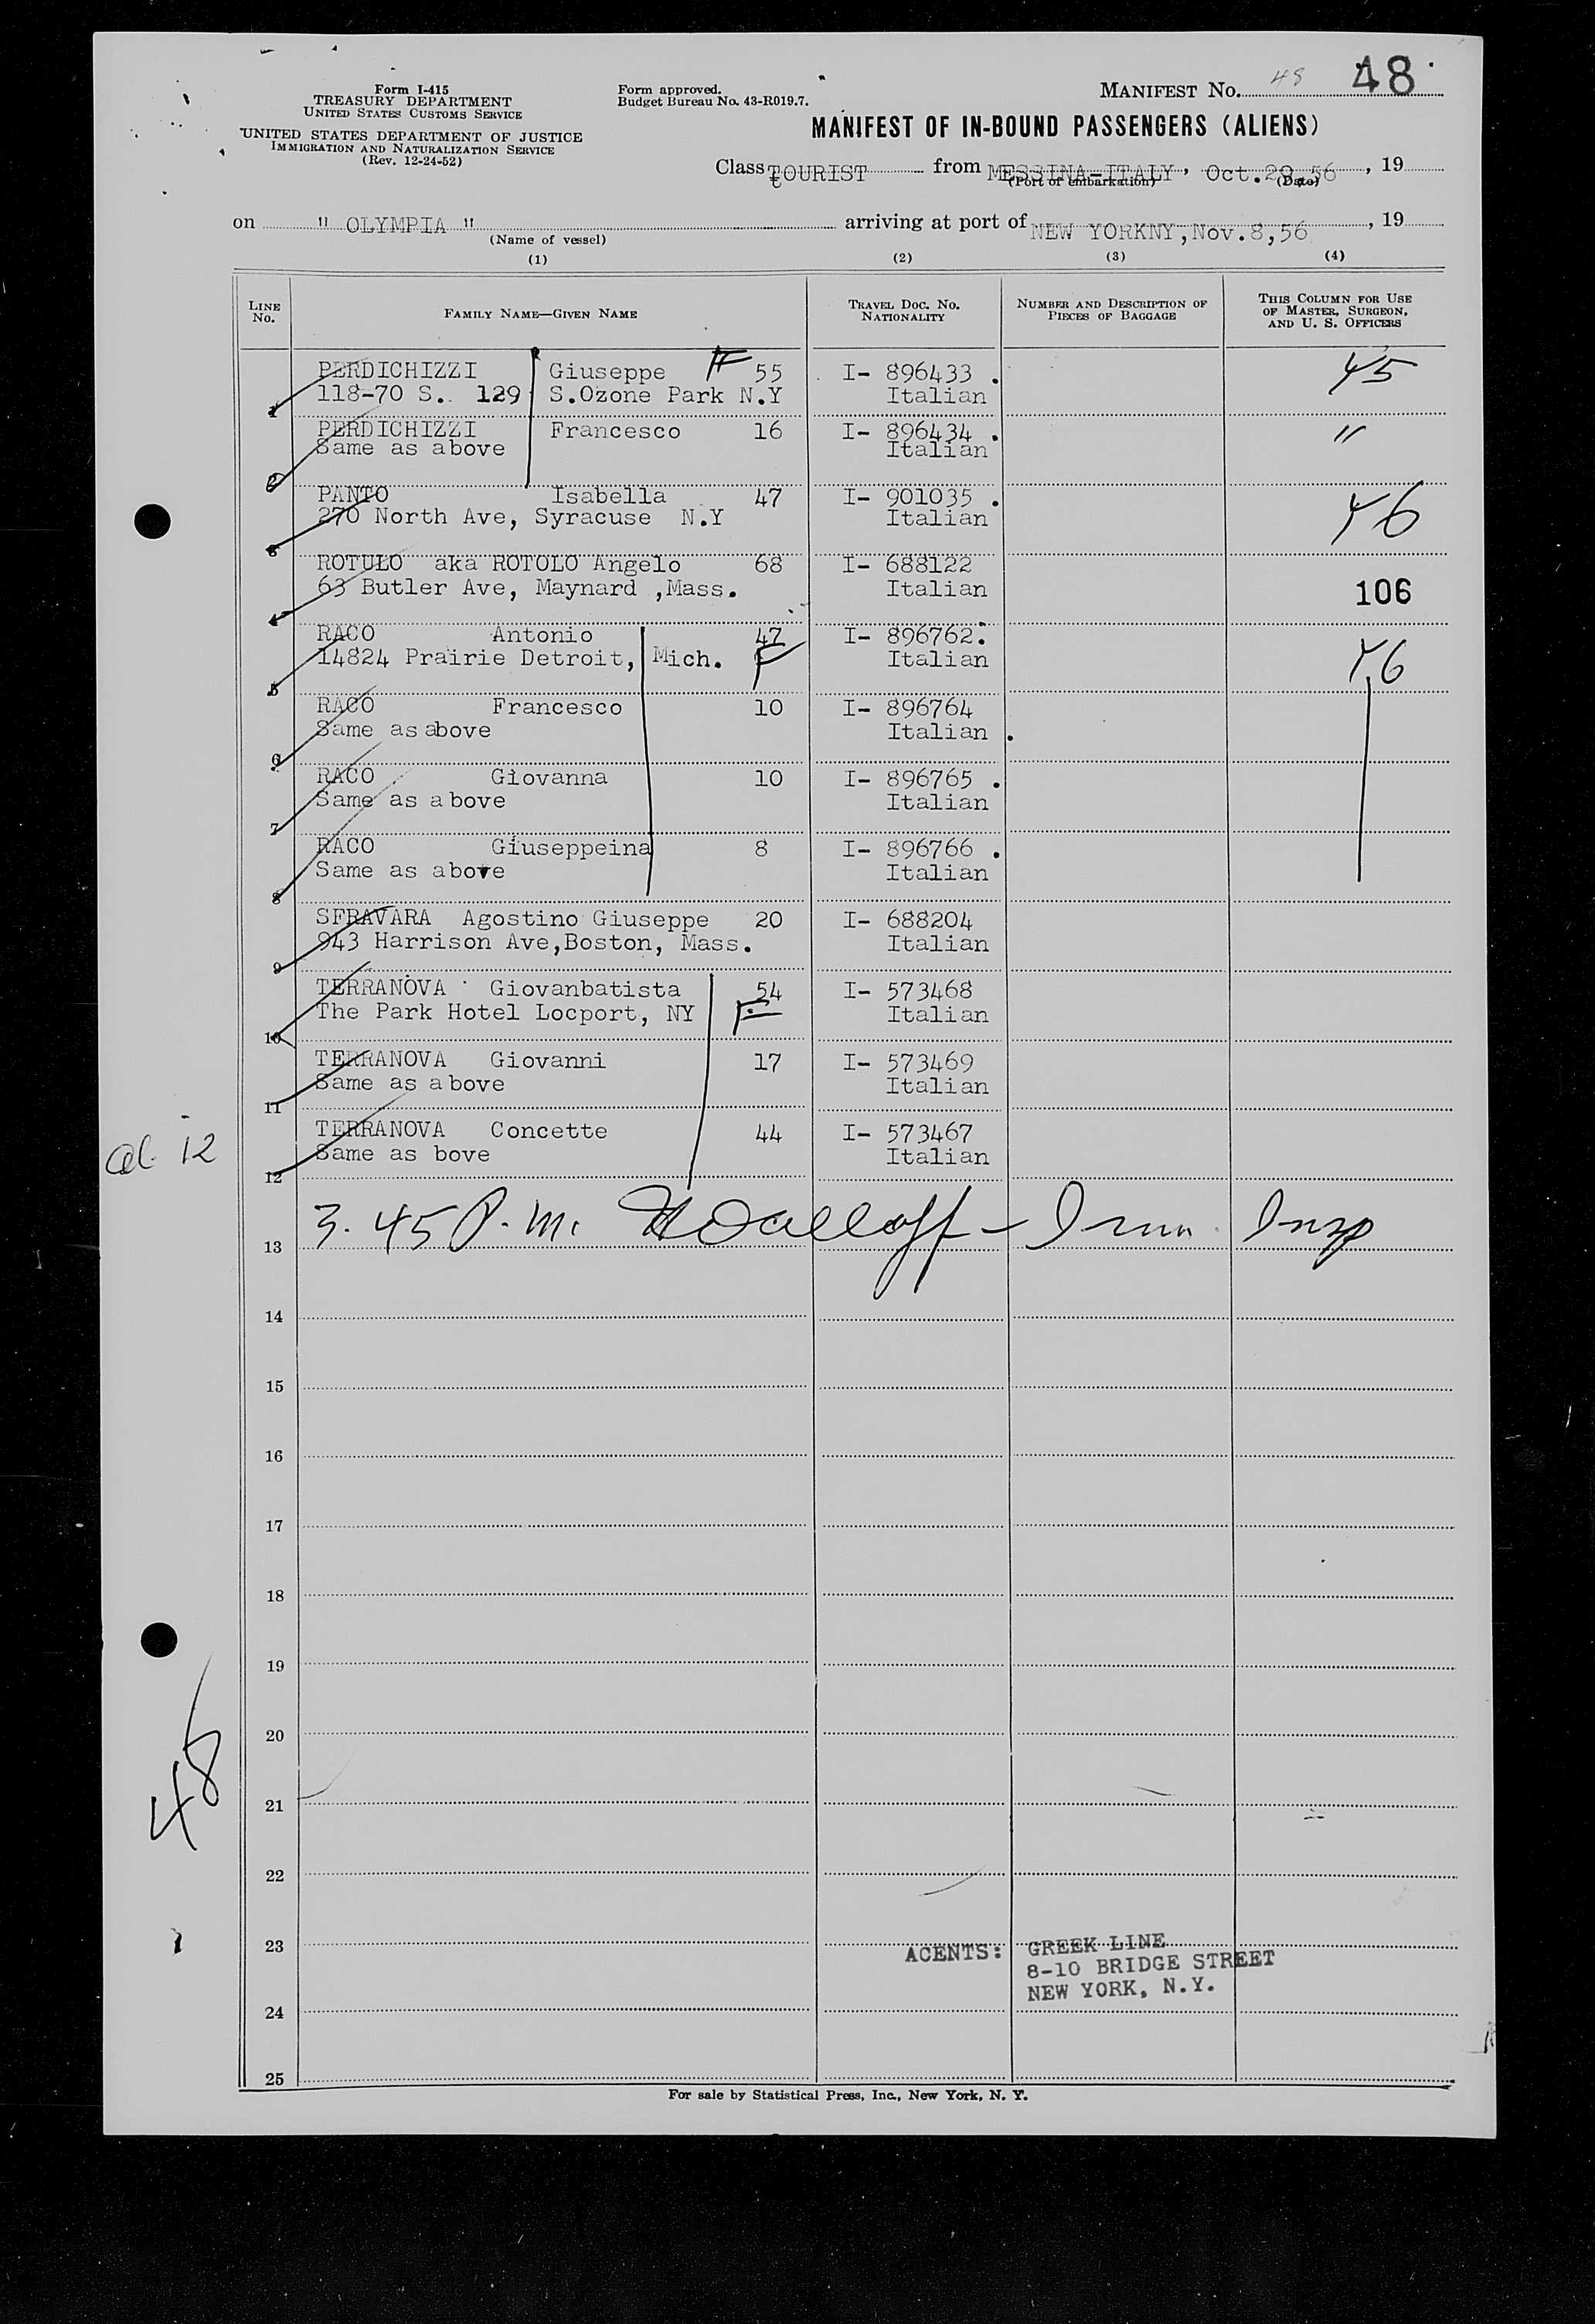 Form I-415
TREASURY DEPARTMENT
UNITED STATES CUSTOMS SERVICE
UNITED STATES DEPARTMENT OF JUSTICE
IMMIGRATION AND NATURALIZATION SERVICE
(Rev. 12-24-52)
Form approved.
Budget Bureau No. 43-R019.7.
MANIFEST No. 48 48
MANIFEST OF IN-BOUND PASSENGERS (ALIENS)
Class TOURIST from MESSINA-ITALY, Oct.29,56, 19
(Port of embarkation) (Date)
on " OLYMPIA " arriving at port of NEW YORKNY,Nov.8,56, 19
(Name of vessel)
(1) (2) (3) (4)
LINE No. FAMILY NAME—GIVEN NAME TRAVEL DOC. No. NATIONALITY NUMBER AND DESCRIPTION OF PIECES OF BAGGAGE THIS COLUMN FOR USE OF MASTER, SURGEON, AND U. S. OFFICERS
PERDICHIZZI Giuseppe F 55 I- 896433 . 45
1 118-70 S. 129 S.Ozone Park N.Y Italian
PERDICHIZZI Francesco 16 I- 896434 . "
2 Same as above Italian
PANTO Isabella 47 I- 901035 . 46
3 270 North Ave, Syracuse N.Y Italian
ROTULO aka ROTOLO Angelo 68 I- 688122
4 63 Butler Ave, Maynard ,Mass. Italian 106
RACO Antonio 47 I- 896762. 46
5 14824 Prairie Detroit, Mich. F Italian
RACO Francesco 10 I- 896764
6 Same as above Italian .
RACO Giovanna 10 I- 896765 .
7 Same as above Italian
RACO Giuseppeina 8 I- 896766 .
8 Same as above Italian
SFRAVARA Agostino Giuseppe 20 I- 688204
9 943 Harrison Ave,Boston, Mass. Italian
TERRANOVA Giovanbatista 54 I- 573468
10 The Park Hotel Locport, NY F Italian
TERRANOVA Giovanni 17 I- 573469
11 Same as above Italian
TERRANOVA Concette 44 I- 573467
12 Same as bove Italian
12
13 3.45 P.m. Imm. Insp
14
15
16
17
18
19
20
48
21
22
23 ACENTS: GREEK LINE
8-10 BRIDGE STREET
NEW YORK, N.Y.
24
25
For sale by Statistical Press, Inc., New York, N. Y.